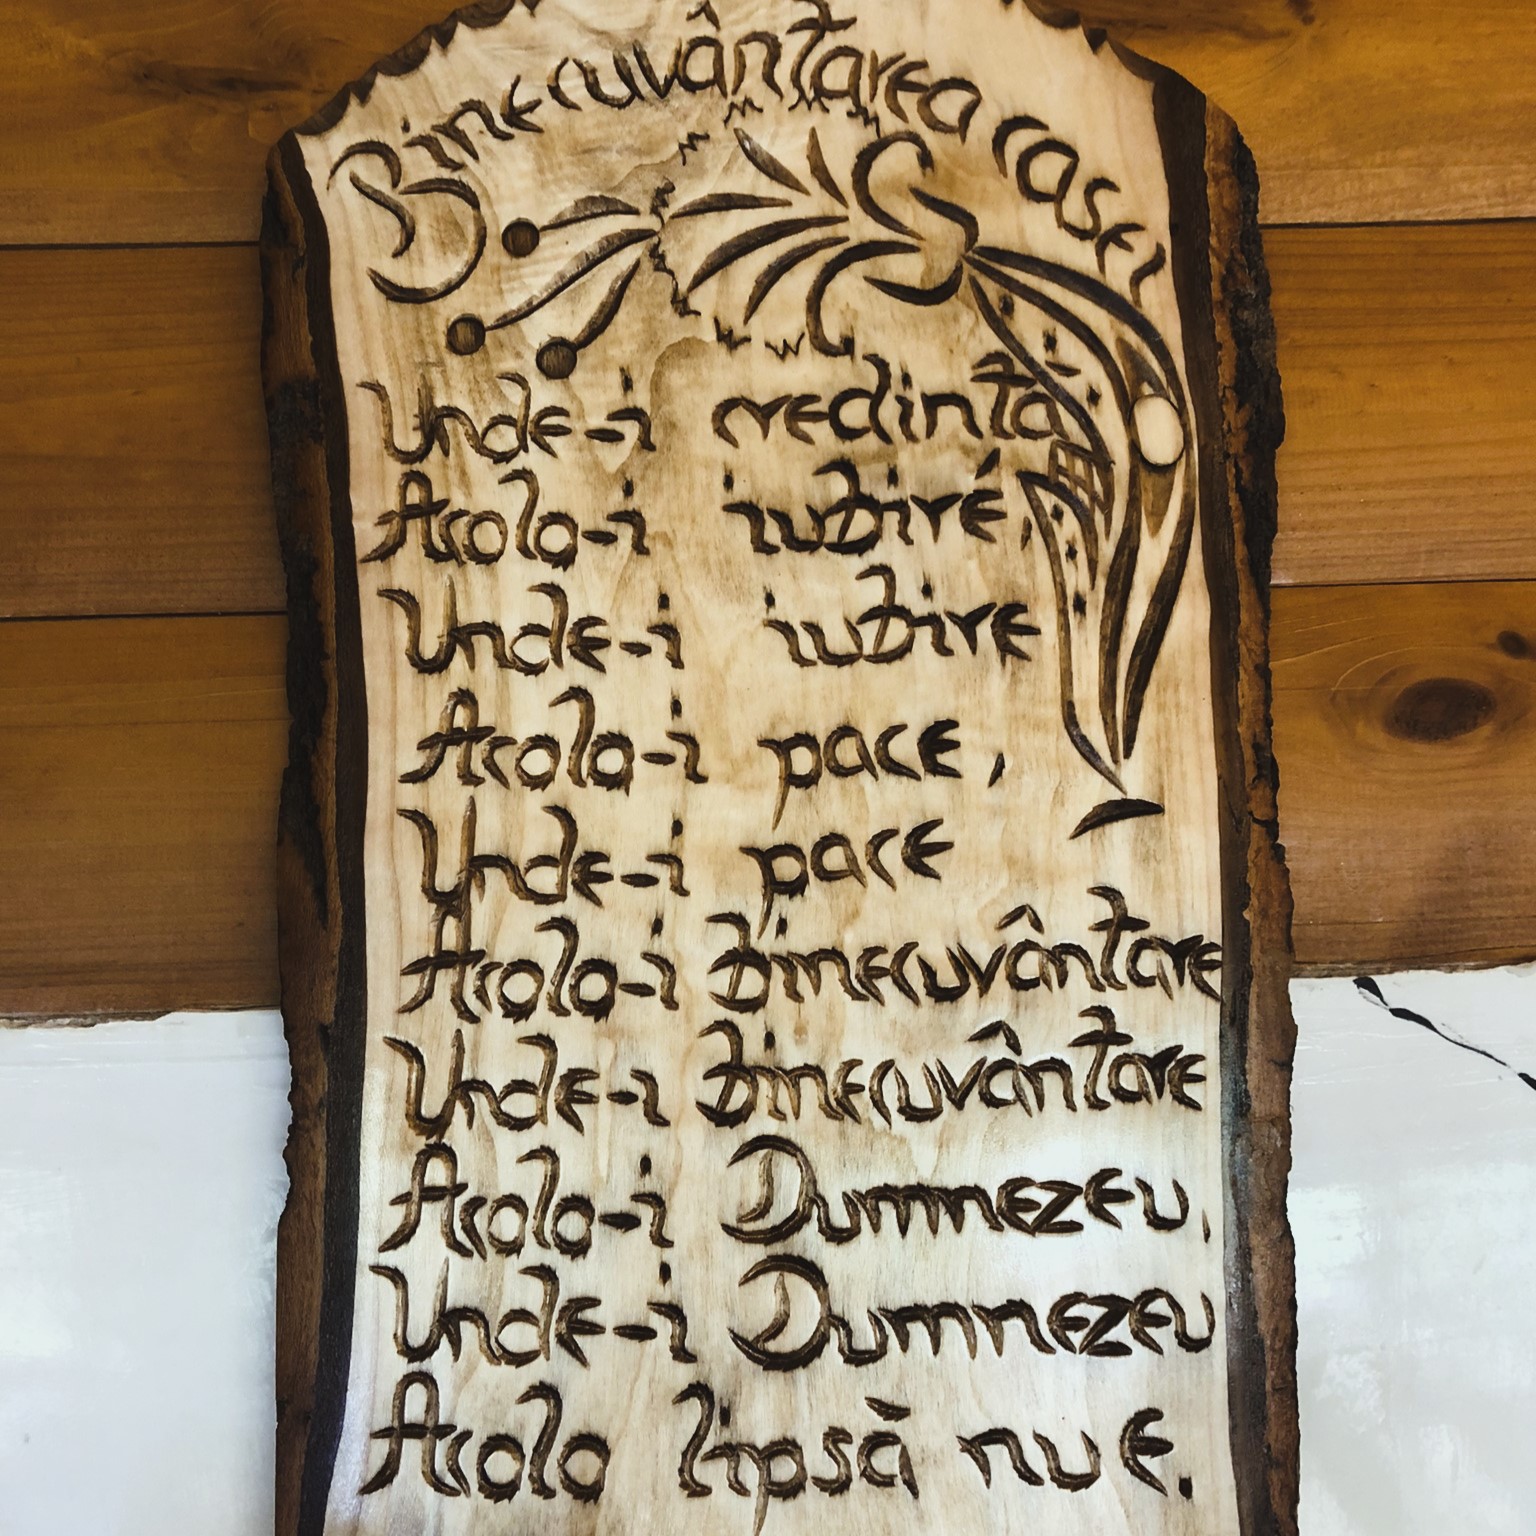 Binecuvântarea casei
Unde-i credintă
Acolo-i iubire,
Unde-i iubire
Acolo-i pace,
Unde-i pace
Acolo-i binecuvântare
Unde-i binecuvântare
Acolo-i Dumnezeu,
Unde-i Dumnezeu
Acolo lipsă nu e.